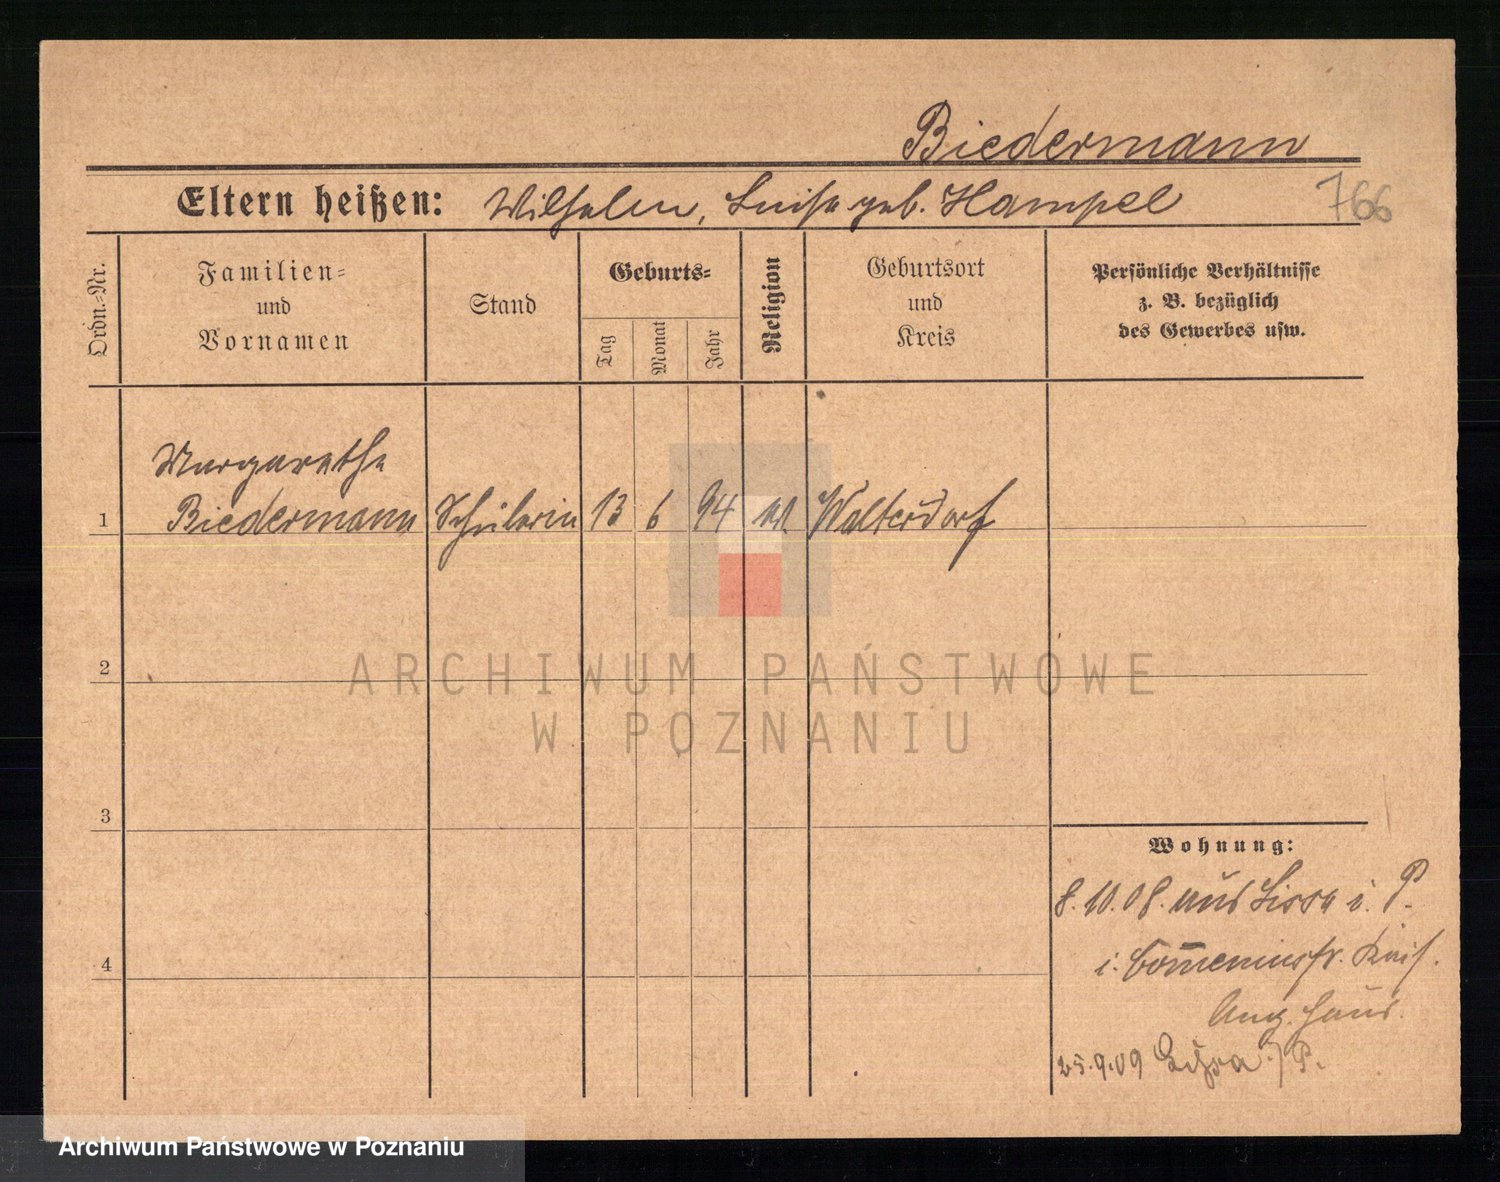 Biedermann
Eltern heißen: Wilhelm, Luise geb. Hampel
766
Ordn.-Nr.
Familien-
und
Vornamen
Stand
Geburts-
Tag
Monat
Jahr
Religion
Geburtsort
und
Kreis
Persönliche Verhältnisse
z. B. bezüglich
des Gewerbes usw.
Margarethe
1 Biedermann Schülerin 13 6 94 ev. Waltersdorf
ARCHIWUM PAŃSTWOWE
W POZNANIU
2
3
4
Wohnung:
8.10.08. aus Lissa i. P.
i. Comeniusstr. Kais.
Aug. Haus.
25.9.09 Lissa i/P.
Archiwum Państwowe w Poznaniu